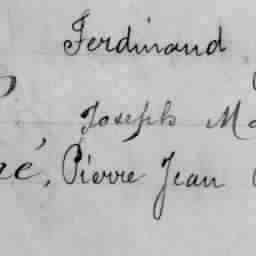 Ferdinand
Joseph Ma
né, Pierre Jean